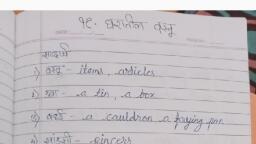 १९. घरातील वस्तू
शब्दार्थ
१) वस्तू - items, articles
२) डबा - a tin, a box
३) कढई - a cauldron, a frying pan
४) सांडशी - pincers